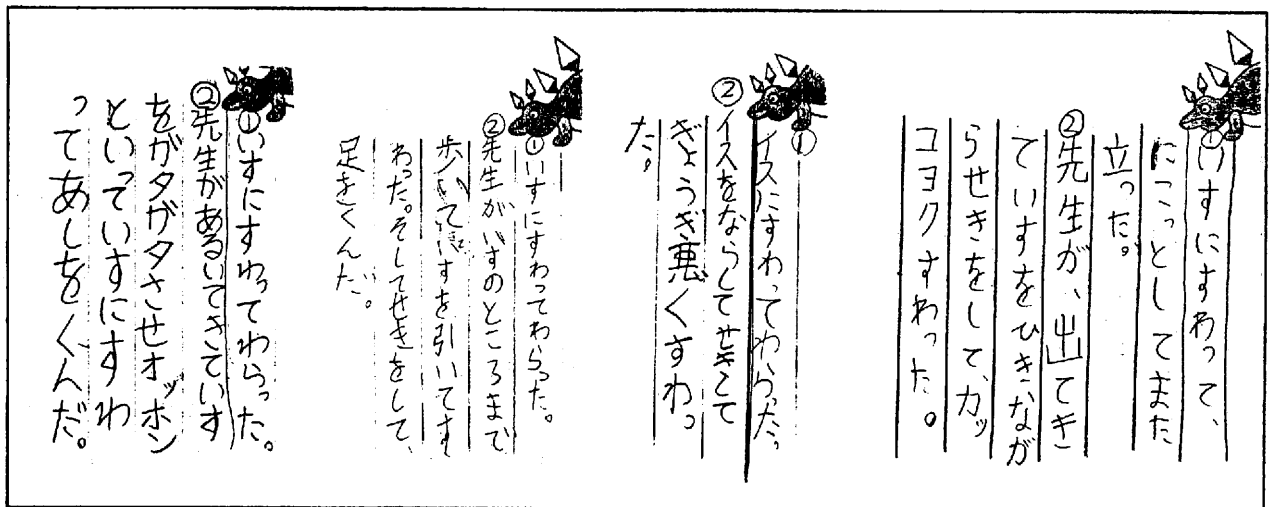 ①いすにすわって、
にこっとしてまた
立った。
②先生が、出てき
ていすをひきなが
らせきをして、カッ
コヨクすわった。
①イスにすわってわらった。
②イスをならしてせきして
ぎょうぎ悪くすわっ
た。
①いすにすわってわらった。
②先生がいすのところまで
歩いていすを引いてす
わった。そしてせきをして、
足をくんだ。
①いすにすわってわらった。
②先生があるいてきていす
をガタガタさせオッホン
といっていすにすわ
ってあしをくんだ。